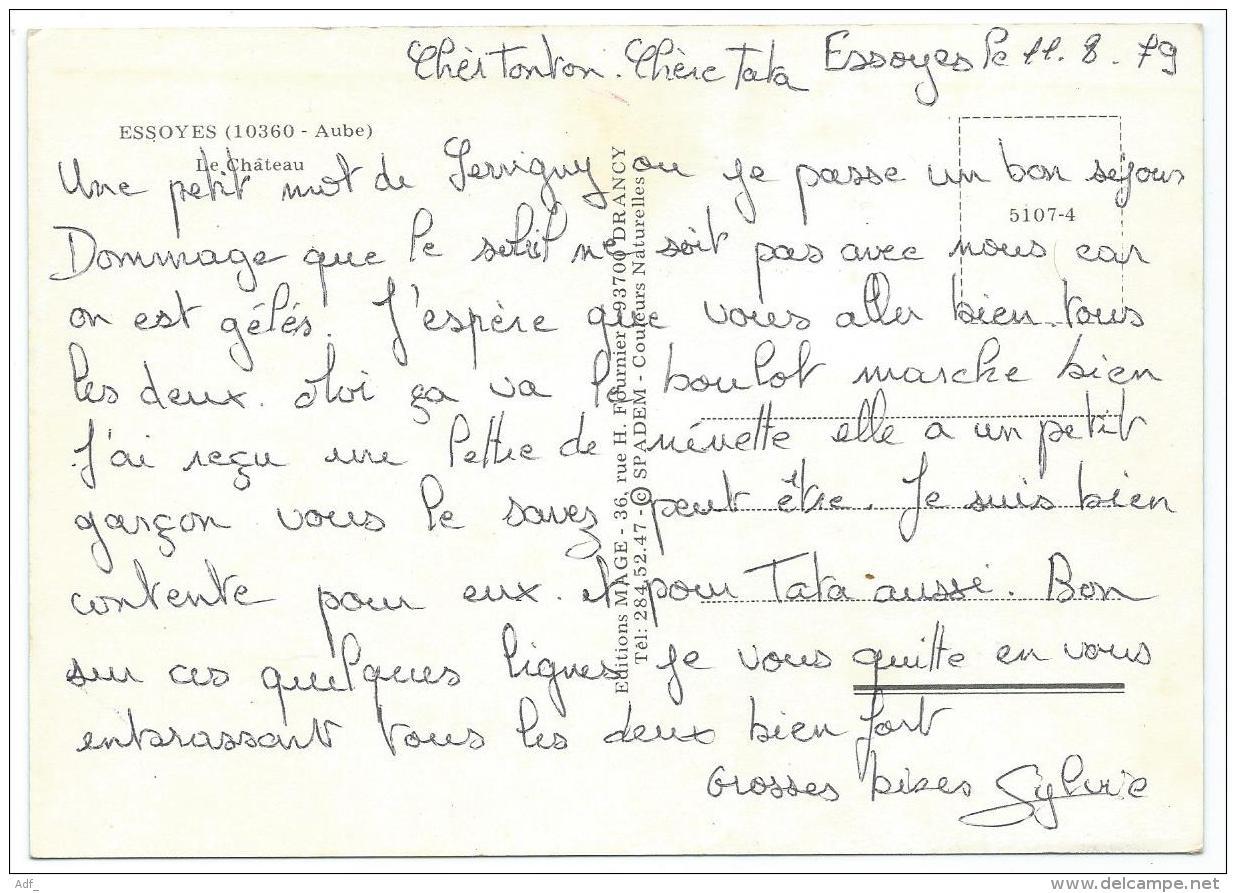 Chèr Tonton. Chère Tata Essoyes le 11.8.79
ESSOYES (10360 - Aube)
Le Château
5107-4
Une petit mot de Servigny ou je passe un bon séjour
Dommage que le soleil ne soit pas avec nous car
on est gélés. J'espère que vous aller bien tous
les deux. Moi ça va le boulot marche bien
J'ai reçu une lettre de nénette elle a un petit
garçon vous le savez peut être. Je suis bien
contente pour eux. et pour Tata aussi. Bon
sur ces quelques lignes je vous quitte en vous
enbrassant tous les deux bien fort
Grosses bises Sylvie
Editions MAGE - 36, rue H. Fournier - 93700 DRANCY
Tél: 284.52.47 - © SPADEM - Couleurs Naturelles
Adf_
www.delcampe.net